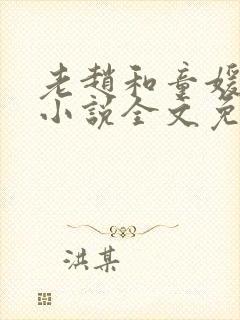 老趙和童媛
小說全文免
洪某